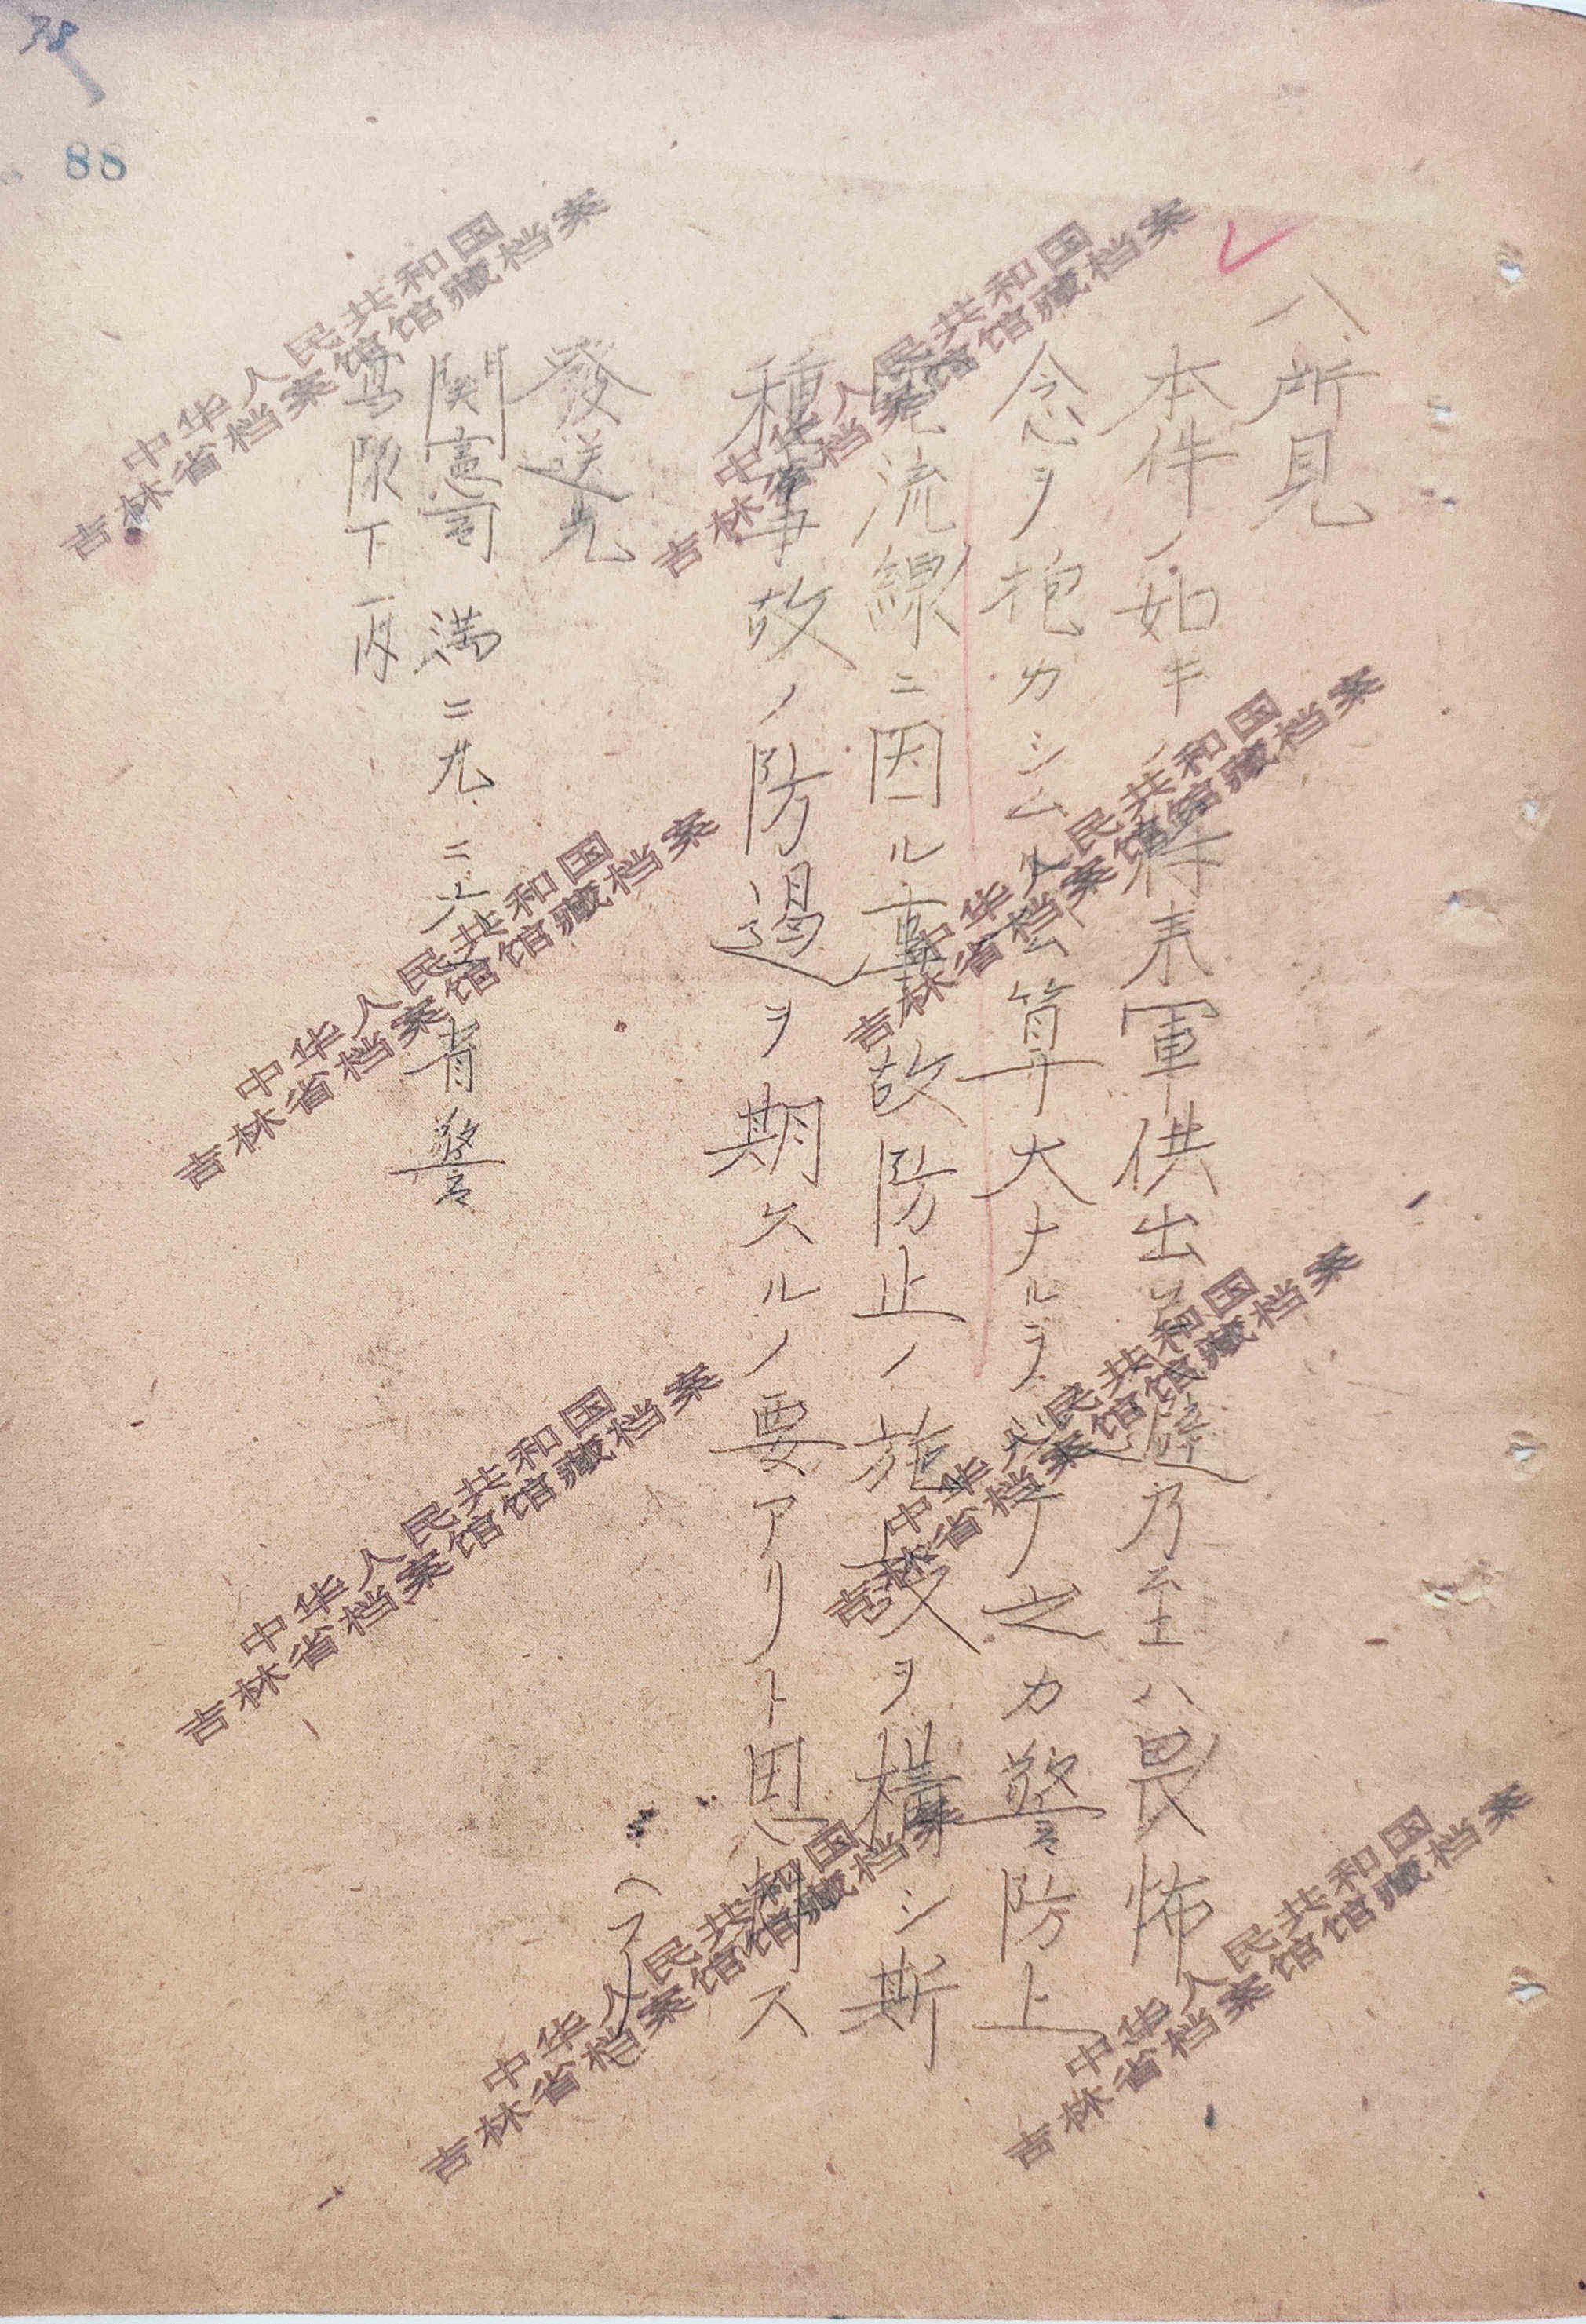 78
88
八、所見
本件ノ如キハ将来軍供出ヲ避乃至ハ畏怖
念ヲ抱カシムル公算大ナルヲ以テ之カ警防上
流線ニ因ル事故防止ノ施設ヲ構シ斯
種事故ノ防遏ヲ期スルノ要アリト思料ス
発送先
関憲司 満二九、二六、警
写隊下一般
中华人民共和国
吉林省档案馆馆藏档案
中华人民共和国
吉林省档案馆馆藏档案
中华人民共和国
吉林省档案馆馆藏档案
中华人民共和国
吉林省档案馆馆藏档案
中华人民共和国
吉林省档案馆馆藏档案
中华人民共和国
吉林省档案馆馆藏档案
中华人民共和国
吉林省档案馆馆藏档案
中华人民共和国
吉林省档案馆馆藏档案